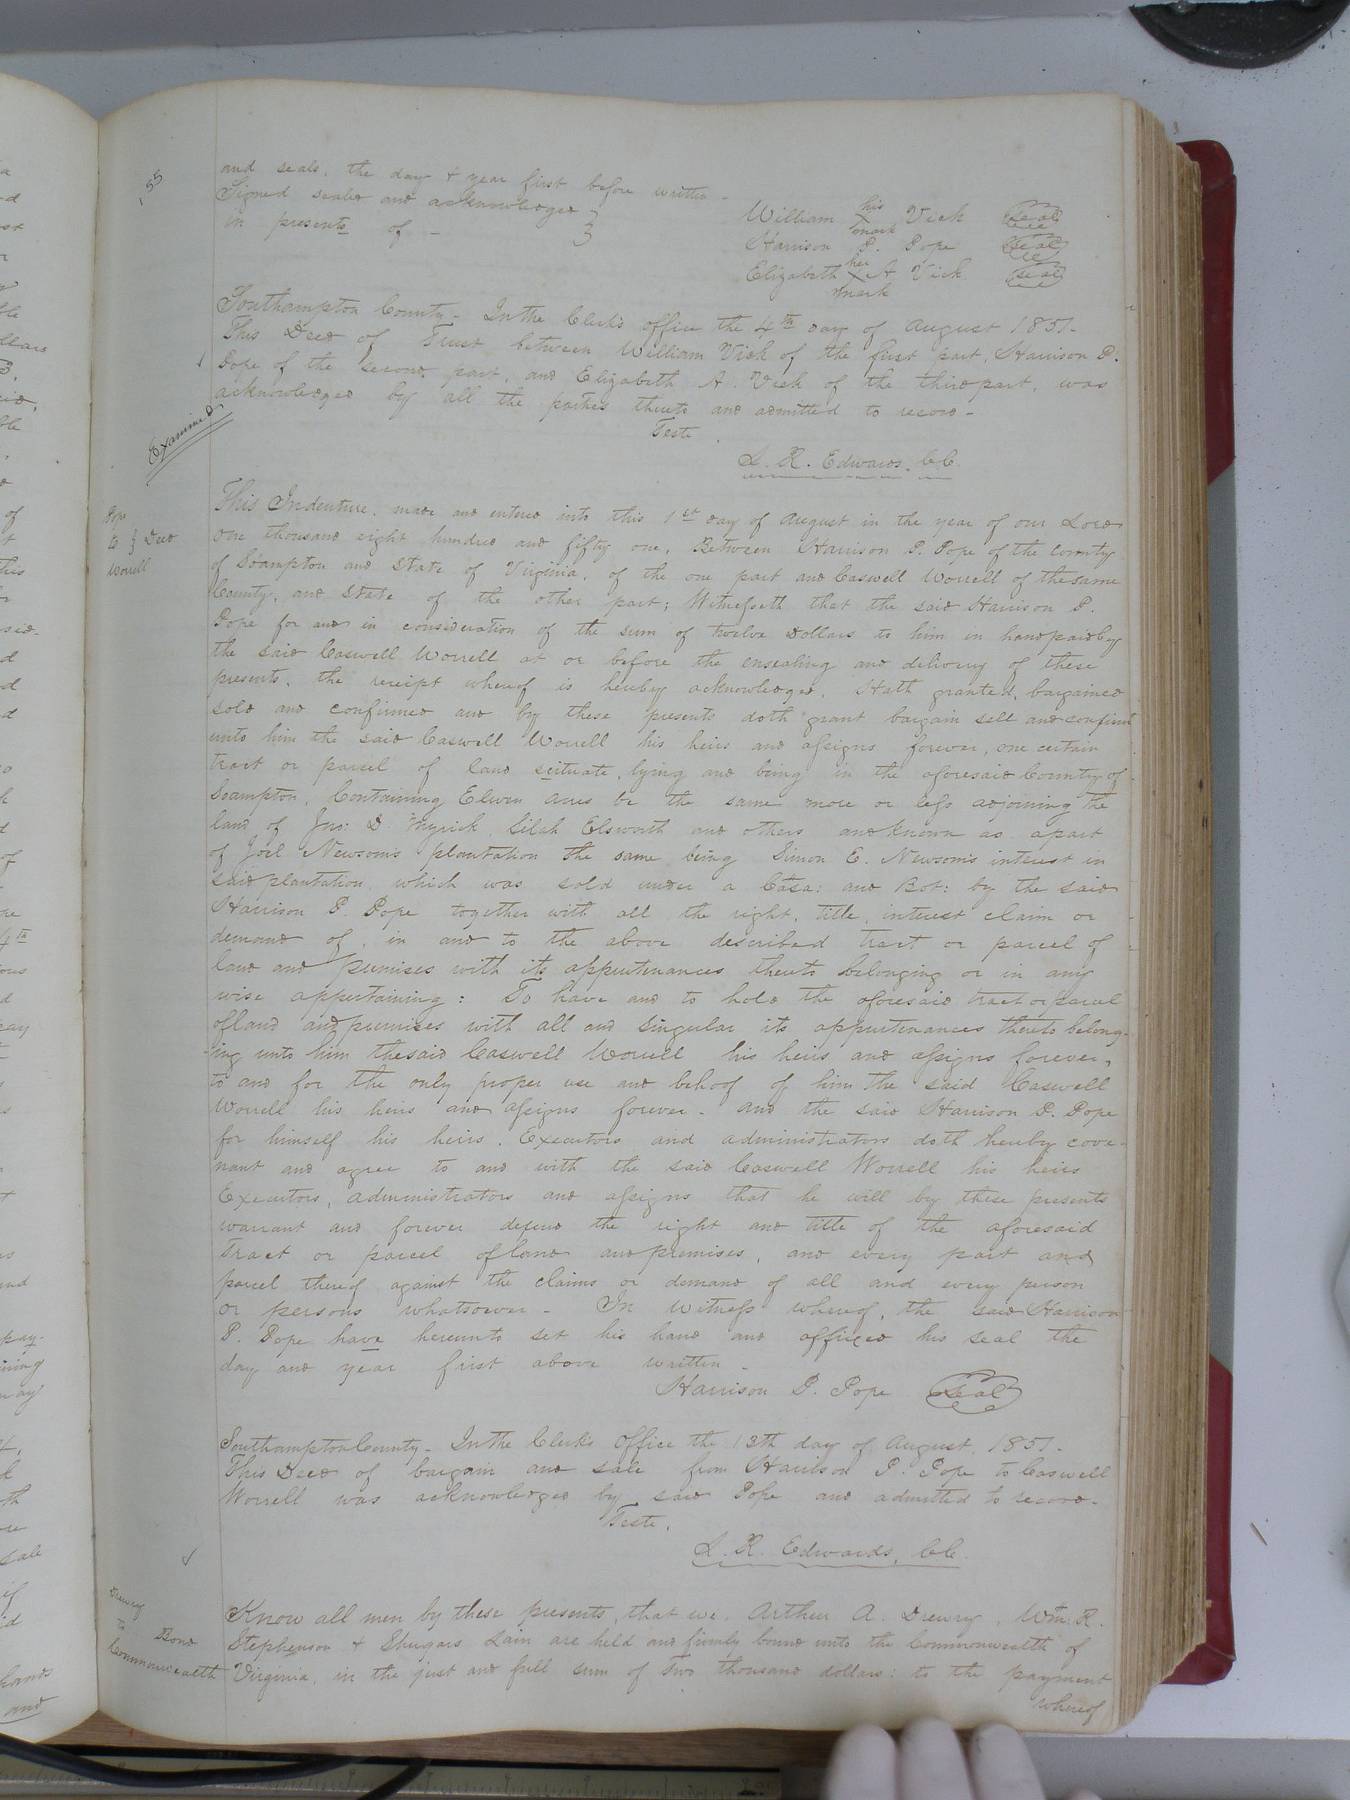 155
and seals, the day & year first before written -
Signed sealed and acknowledged }
in presents of -
William his Vick Seal
mark
Harrison P. Pope Seal
Elizabeth her X A Vick Seal
mark
Southampton County - In the Clerk's office the 4th day of August 1851-
This Deed of Trust between William Vick of the first part, Harrison P.
Pope of the second part, and Elizabeth A. Vick of the third part, was
acknowledged by all the parties thereto and admitted to record -
Teste
L. R. Edwards. C.C.
Examined
Pope
to } Deed
Worrell
This Indenture, made and entered into this 1st day of August in the year of our Lord
one thousand eight hundred and fifty one, Between Harrison P. Pope of the County
of S'hampton and State of Virginia, of the one part and Caswell Worrell of the same
County, and State of the other part; Witnesseth that the said Harrison P.
Pope for and in consideration of the sum of twelve Dollars to him in hand paid by
the said Caswell Worrell at or before the ensealing and delivery of these
presents, the receipt whereof is hereby acknowledged, Hath granted, bargained
sold and confirmed and by these presents doth grant bargain sell and confirm
unto him the said Caswell Worrell his heirs and assigns forever, one certain
tract or parcel of land scituate, lying and being in the aforesaid County of
Soampton, Containing Elven acres be the same more or less adjoining the
land of Jno: D. Myrick, Silah Elsworth and others and known as a part
of Joel Newsom's plantation the same being Simon E. Newsom's interest in
said plantation, which was sold under a Casa: and Bot: by the said
Harrison P. Pope together with all the right, title, interest claim or
demand of, in and to the above described tract or parcel of
land and premises with its appurtenances thereto belonging or in any
wise appertaining: To have and to hold the aforesaid tract or parcel
of land and premises with all and singular its appurtenances thereto belong-
-ing unto him the said Caswell Worrell his heirs and assigns forever,
to and for the only proper use and behoof of him the said Caswell
Worrell his heirs and assigns forever. and the said Harrison P. Pope
for himself his heirs, Executors and administrators doth hereby cove-
nant and agree to and with the said Caswell Worrell his heirs
Executors, administrators and assigns that he will by these presents
warrant and forever defend the right and title of the aforesaid
Tract or parcel of land and premises, and every part and
parcel thereof against the claims or demand of all and every person
or persons whatsoever - In witness whereof, the said Harrison
P. Pope have hereunto set his hand and affixed his seal the
day and year first above written -
Harrison P. Pope Seal
Southampton County - In the Clerk's Office the 13th day of August, 1851-
This Deed of bargain and sale from Harrison P. Pope to Caswell
Worrell was acknowledged by said Pope and admitted to record -
Teste,
L. R. Edwards, C.C.
Drewry
to Bond
Commonwealth
Know all men by these presents, that we, Arthur A. Drewry, Wm. R.
Stephenson & Shugars Lain are held and firmly bound unto the Commonwealth of
Virginia, in the just and full sum of Two thousand dollars: to the payment
whereof